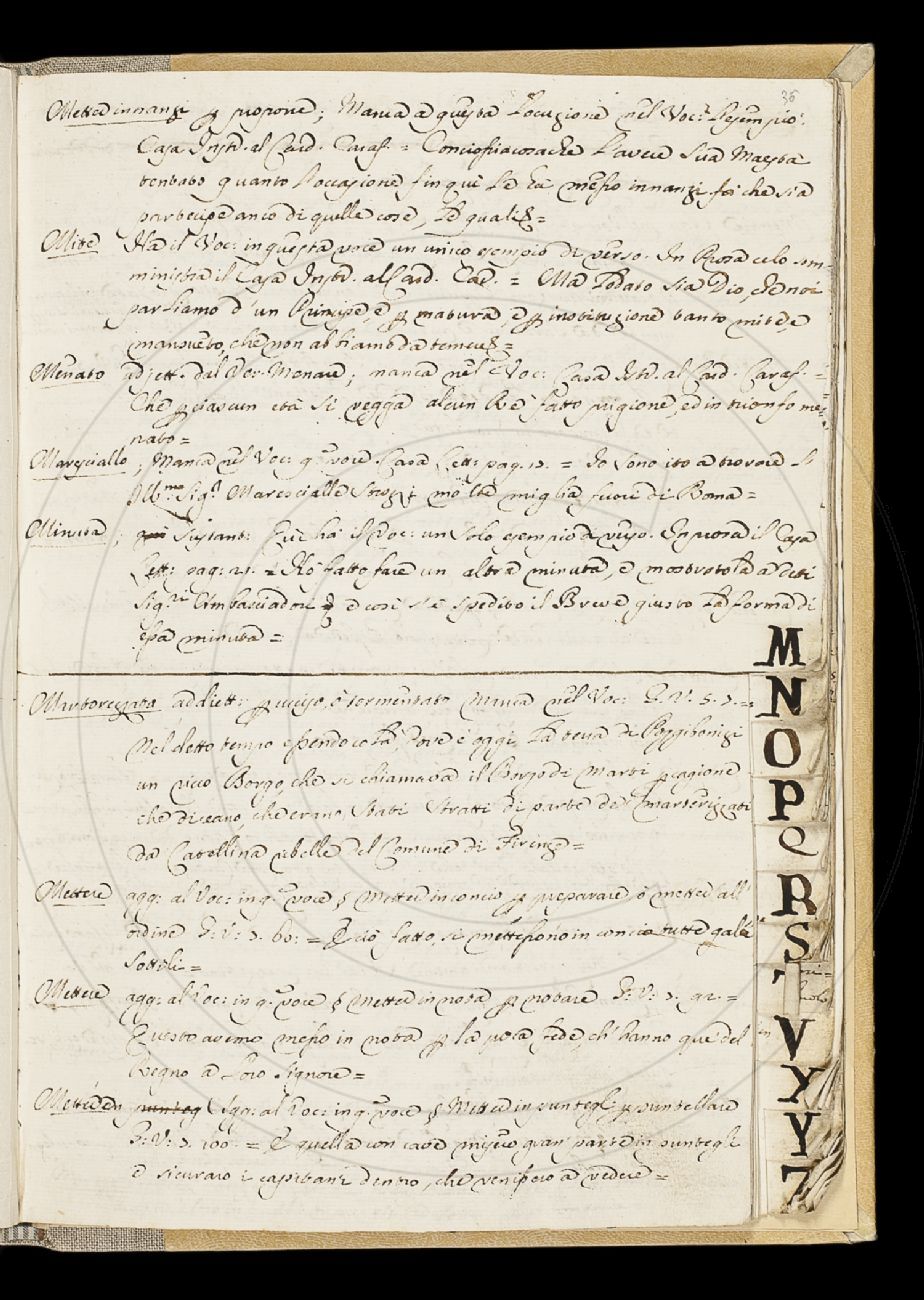 36
Metter innanzi p proporre; Manca a questa Locuzione nel Voc: l'esempio.
Casa Instr. al Card. Caraf. = Conciossiacosache l'avere Sua Maestà
tentato quanto l'occasione fin quì le hà messo innanzi, fà che sia
partecipe anco di quelle cose, le quali &=
Mite Ha il Voc: in questa voce un unico esempio di verso. In Prosa celo som-
ministra il Casa Instr. al Card. Car. = Ma lodato sia Dio, che noi
parliamo d'un Principe, e p natura, e p instituzione tanto mite, e
mansueto, che non abbiamo da temer &=
Menato adjett. dal Ver. Menare; manca nel Voc: Casa Istr. al Card. Caraf. =
Che p ciascun età si vegga alcun Re fatto prigione, ed in trionfo me-
nato=
Maresciallo; Manca nel Voc: q.ª voce. Casa Lett: pag. 13. = Io sono ito a trovare l'
Ill.mo Sig.r Maresciallo Strozzi molte miglia fuori di Roma=
Minuta; Sustant: Quì ha il Voc: un solo esempio di verso. In prosa il Casa
Lett: pag: 21. = Hò fatto fare un altra minuta, e mostratola a detti
Sig.ri Ambasciadori & e così s'è spedito il Breve, giusto la forma di
essa minuta=
Martorezzato addiett: p ucciso, ò tormentato Manca nel Voc: G. V. 5. 3. =
Nel detto tempo essendo colà, dove è oggi, la terra di Poggibonizi
un ricco Borgo, che si chiamava il Borgo di Marti p cagione
che diceano, che erano stati stratti di parte de' marterizzati
da Catellina ribelle del Comune di Firenze=
Mettere agg: al Voc: in q.ª voce § Metter in concio p preparare ò metter all'
ordine G: V: 7. 60: = E ciò fatto, si mettessono in concio tutte galée
sottili=
Mettere agg: al Voc: in q.ª voce § Metter in nota p notare G: V: 7. 92. =
Questo avemo messo in nota p la poca fede, ch'hanno que' del
Regno a loro Signore=
Metter in punteg Agg: al Voc: in q.ª voce § Metter in puntegli p puntellare
G: V: 7. 100. = E quella con cave misero gran parte in puntegli
e sicuraro i capitani dentro, che venissero a vedere=
M
N
O
P
Q
R
S
T
V
X
Y
Z